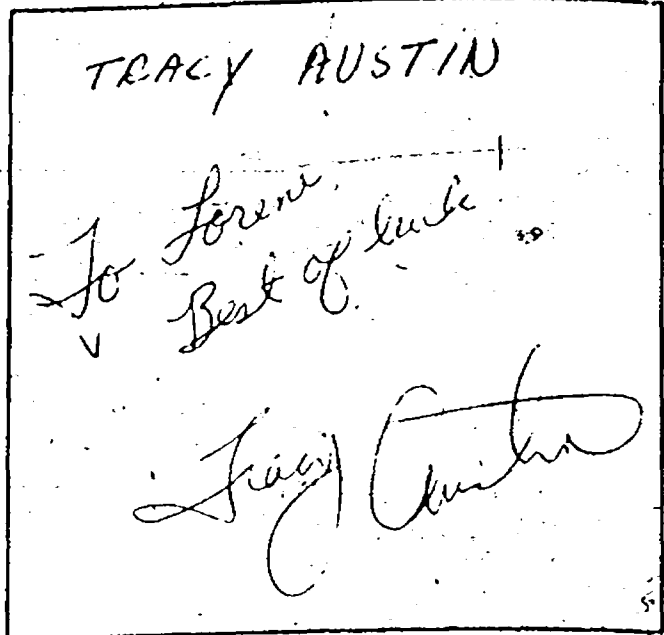 TRACY AUSTIN
To Lorene,
Best of luck!
Tracy Austin